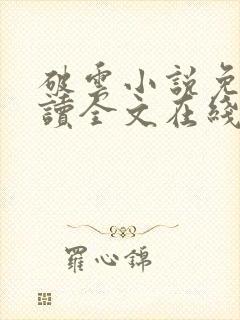 破雲小說免
讀全文在綫
羅心錦